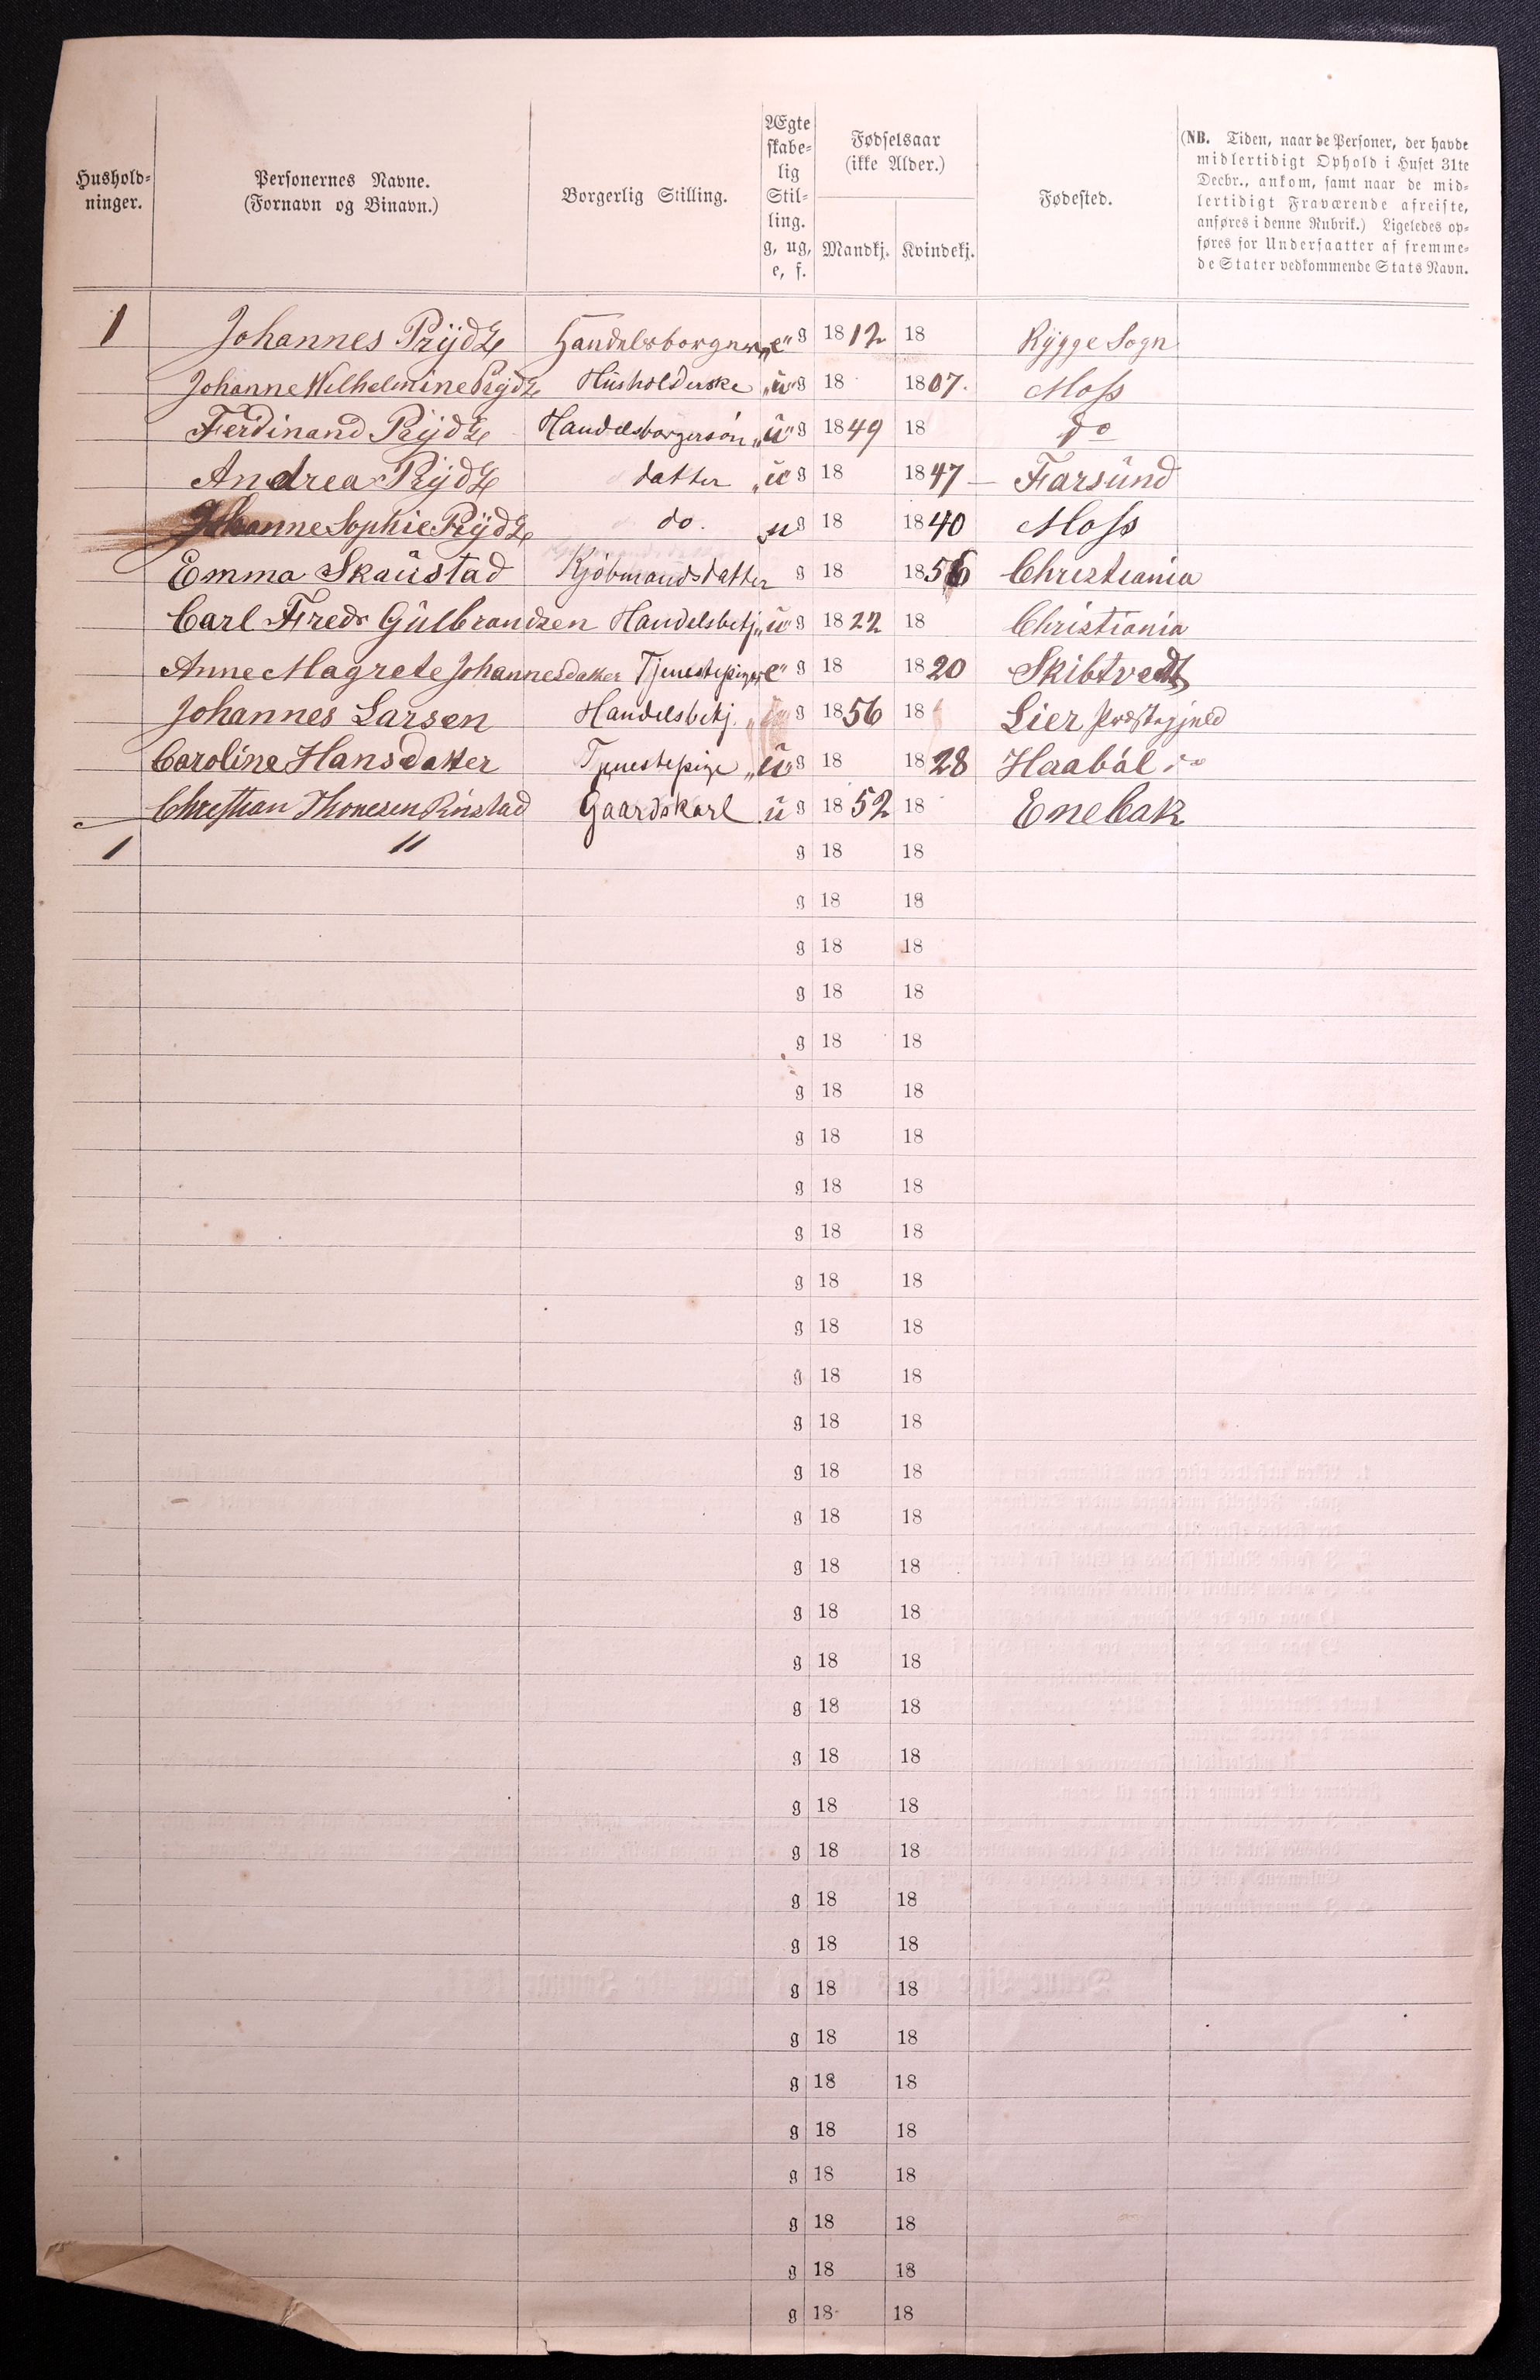 Hushold-
ninger.
Personernes Navne.
(Fornavn og Binavn.)
Borgerlig Stilling.
Ægte
skabe-
lig
Stil-
ling.
g, ug,
e, f.
Fødselsaar
(ikke Alder.)
Mandkj. Kvindekj.
Fødested.
(NB. Tiden, naar de Personer, der havde
midlertidigt Ophold i Huset 31te
Decbr., ankom, samt naar de mid-
lertidigt Fraværende afreiste,
anføres i denne Rubrik.) Ligeledes op-
føres for Undersaatter af fremme-
de Stater vedkommende Stats Navn.
1 Johannes Prÿdz Handelsborgner „e" g 1812 18 Rÿgge Sogn
Johanne Wilhelmine Prÿdz Husholderske „u" g 18 1807. Moss
Ferdinand Prÿdz Handelsborgersön „u" g 1849 18 do
Andrea Prÿdz datter „u g 18 1847 — Farsund
Johanne Sophie Prÿdz do. u g 18 1840 Moss
Emma Skaustad Kjöbmandsdatter g 18 1856 Christiania
Carl Fredr Gulbrandsen Handelsbetj „u" g 1822 18 Christiania
Anne Magrete Johannesdatter Tjenestepige „e" g 18 1820 Skibtvedt
Johannes Larsen Handelsbetj. g 1856 18 Lier Præstegjeld
Caroline Hansdatter Tjenestepige „u g 18 1828 Haaböl do
Christian Thonesen Rustad Gaardskarl u g 1852 18 Enebak
1 11 g 18 18
g 18 18
g 18 18
g 18 18
g 18 18
g 18 18
g 18 18
g 18 18
g 18 18
g 18 18
g 18 18
g 18 18
g 18 18
g 18 18
g 18 18
g 18 18
g 18 18
g 18 18
g 18 18
g 18 18
g 18 18
g 18 18
g 18 18
g 18 18
g 18 18
g 18 18
g 18 18
g 18 18
g 18 18
g 18 18
g 18 18
g 18 18